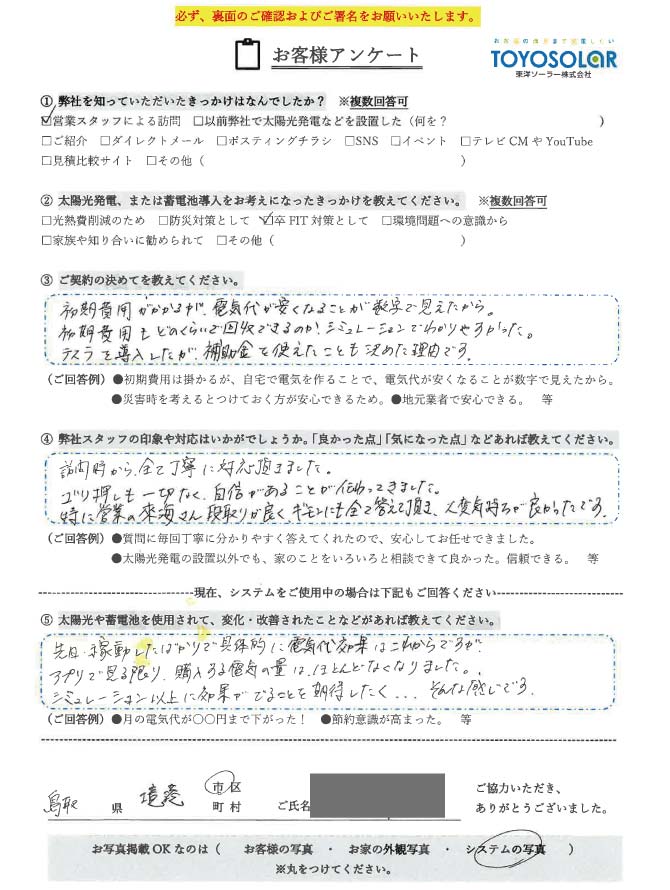 必ず、裏面のご確認およびご署名をお願いいたします。
お客様アンケート
お客様の満足まで追尾したい
TOYOSOLAR
東洋ソーラー株式会社
① 弊社を知っていただいたきっかけはなんでしたか？ ※複数回答可
☑営業スタッフによる訪問 □以前弊社で太陽光発電などを設置した（何を？ ）
□ご紹介 □ダイレクトメール □ポスティングチラシ □SNS □イベント □テレビCMやYouTube
□見積比較サイト □その他（ ）
② 太陽光発電、または蓄電池導入をお考えになったきっかけを教えてください。 ※複数回答可
□光熱費削減のため □防災対策として ☑卒FIT対策として □環境問題への意識から
□家族や知り合いに勧められて □その他（ ）
③ ご契約の決めてを教えてください。
初期費用がかかるが、電気代が安くなることが数字で見えたから。
初期費用もどのくらいで回収できるのか？シミュレーションでわかりやすかった。
テスラを導入したが、補助金を使えたことも決めた理由です。
（ご回答例）●初期費用は掛かるが、自宅で電気を作ることで、電気代が安くなることが数字で見えたから。
●災害時を考えるとつけておく方が安心できるため。●地元業者で安心できる。 等
④ 弊社スタッフの印象や対応はいかがでしょうか。「良かった点」「気になった点」などあれば教えてください。
訪問時から、全て丁寧に対応頂きました。
ゴリ押しも一切なく、自信があることが伝わってきました。
特に営業の來海さん、段取りが良く、ギモンにも全て答えて頂き、大変気持ちが良かったです。
（ご回答例）●質問に毎回丁寧に分かりやすく答えてくれたので、安心してお任せできました。
●太陽光発電の設置以外でも、家のことをいろいろと相談できて良かった。信頼できる。 等
現在、システムをご使用中の場合は下記もご回答ください
⑤ 太陽光や蓄電池を使用されて、変化・改善されたことなどがあれば教えてください。
先日、稼動したばかりで具体的に電気代効果はこれからですが、
アプリで見る限り、購入する電気の量は、ほとんどなくなりました。
シミュレーション以上に効果がでることを期待したく... そんな感じです。
（ご回答例）●月の電気代が〇〇円まで下がった！ ●節約意識が高まった。 等
鳥取 県 境港 市区町村 ご氏名
ご協力いただき、
ありがとうございました。
お写真掲載OKなのは（ お客様の写真 ・ お家の外観写真 ・ システムの写真 ）
※丸をつけてください。